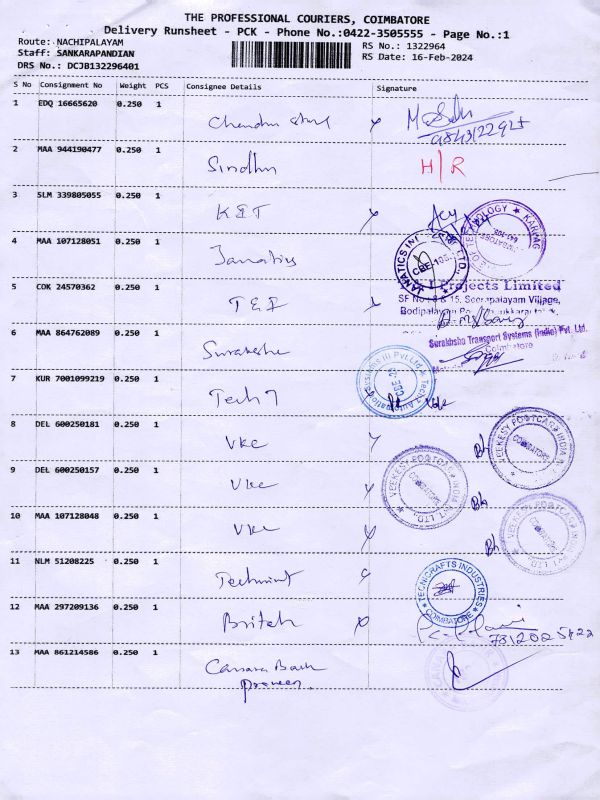 THE PROFESSIONAL COURIERS, COIMBATORE
Delivery Runsheet - PCK - Phone No.:0422-3505555 - Page No.:1
Route: NACHIPALAYAM
Staff: SANKARAPANDIAN
DRS No.: DCJB132296401
RS No.: 1322964
RS Date: 16-Feb-2024
S No Consignment No Weight PCS Consignee Details Signature
1 EDQ 16665620 0.250 1
9843122925
2 MAA 944190477 0.250 1 Sindhu H/R
3 SLM 339805055 0.250 1
OF TECHNOLOGY ★ KARPAG
4 MAA 107128051 0.250 1 Janatics
JANATICS IN LTD.
CBE-105
5 COK 24570362 0.250 1
Projects Limited
SF No: 8 & 15, Seerapalayam Village,
6 MAA 864762089 0.250 1
Surakhsha Transport Systems (India) Pvt. Ltd.
Coimbatore
7 KUR 7001099219 0.250 1 Tech 7
8 DEL 600250181 0.250 1 Vkc
VEEKESY POSTCARE INDIA
COIMBATORE
9 DEL 600250157 0.250 1 Vkc
VEEKESY POSTCARE INDIA PVT. LTD.
COIMBATORE
10 MAA 107128048 0.250 1 Vkc
VEEKESY POSTCARE INDIA PVT. LTD.
COIMBATORE
11 NLM 51208225 0.250 1
TECNICRAFTS INDUSTRIES
★ COIMBATORE ★
12 MAA 297209136 0.250 1
13 MAA 861214586 0.250 1 Canara Bank
praveen